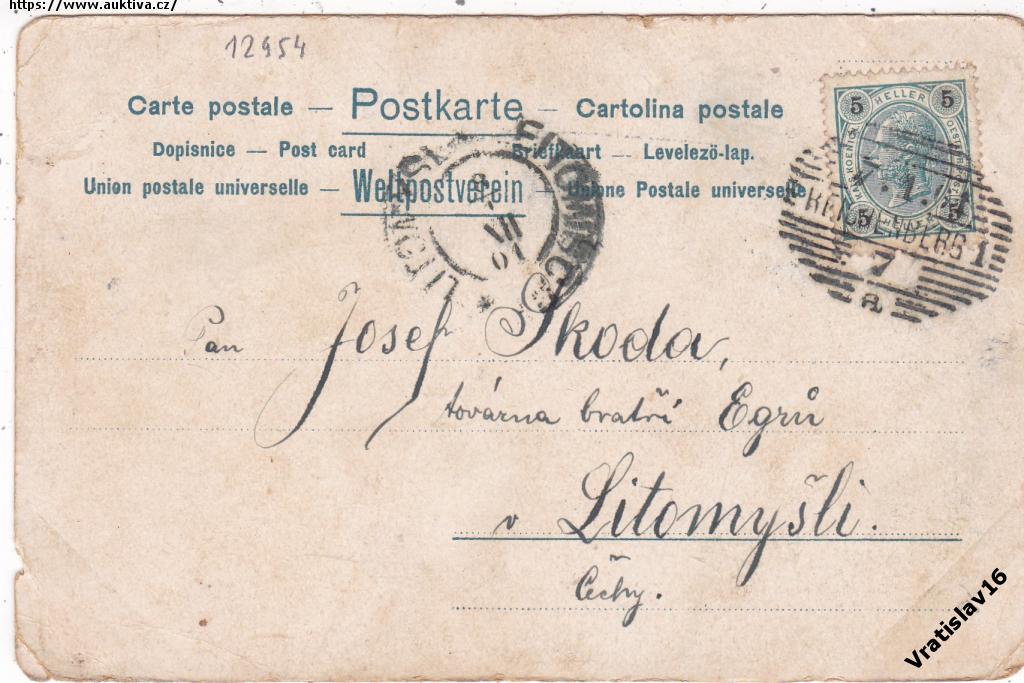 https://www.auktiva.cz/
12954
Carte postale — Postkarte — Cartolina postale
Dopisnice — Post card Briefkaart — Levelező-lap.
Union postale universelle — Weltpostverein — Unione Postale universelle
5 HELLER 5
5 5
REICHENBERG 1
7
a
LEITOMISCHL
LITOMYŠL
VII
01
Pan Josef Škoda,
továrna bratří Egrů
v Litomyšli.
Čechy.
Vratislav16